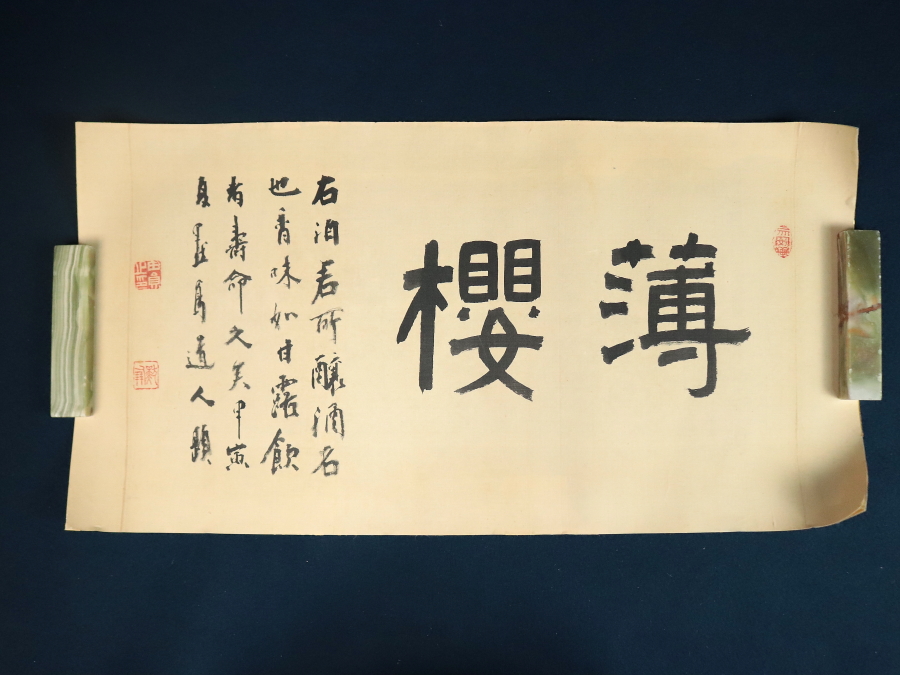 薄櫻
右泊君所釀酒名
也香味如甘露飲
者壽命久矣甲寅
夏 道人題